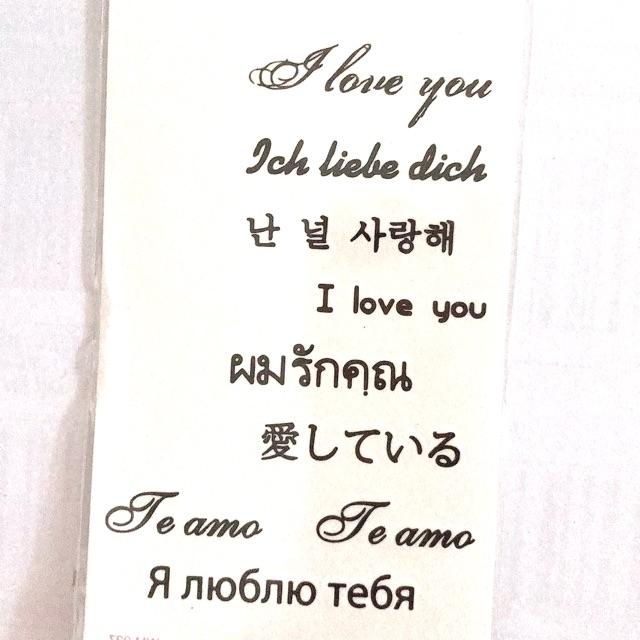 I love you
Ich liebe dich
난 널 사랑해
I love you
ผมรักคุณ
愛している
Te amo Te amo
Я люблю тебя